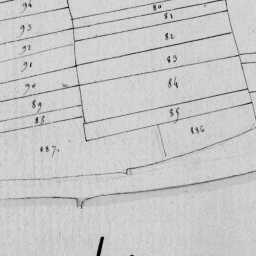 94
93
92
91
90
89
88
887.
80
81
82
83
84
85
886